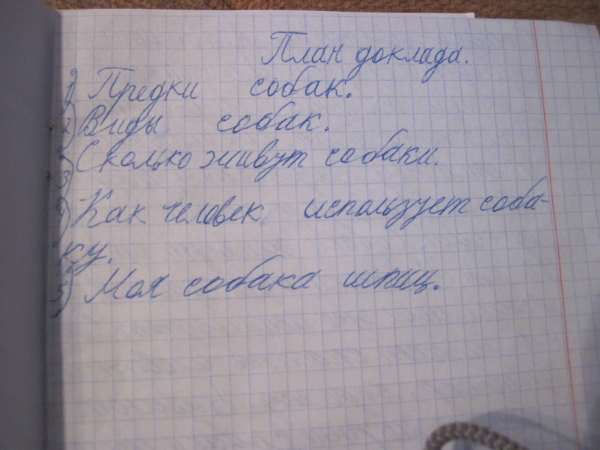 План доклада.
1) Предки собак.
2) Виды собак.
3) Сколько живут собаки.
4) Как человек использует соба-
ку.
5) Моя собака шпиц.